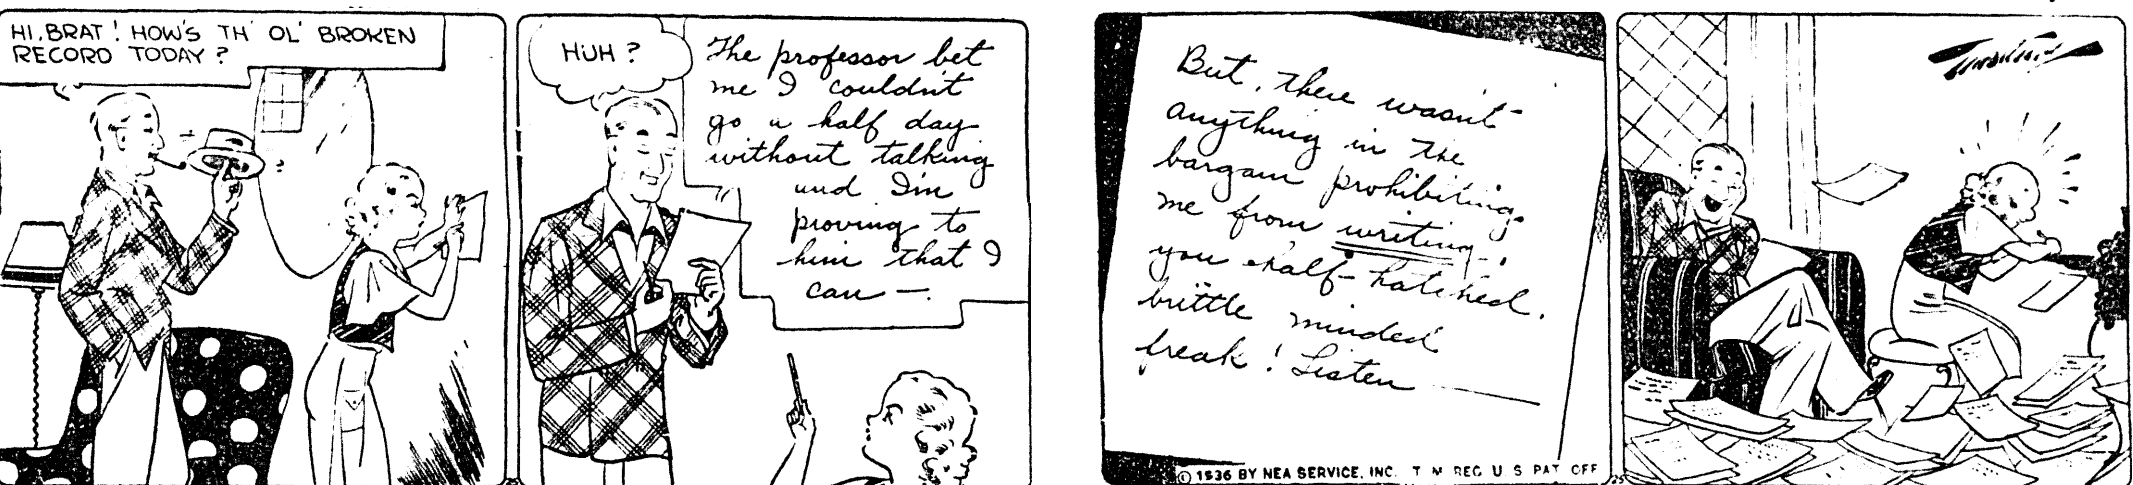 HI, BRAT! HOW'S TH' OL' BROKEN
RECORD TODAY?
HUH?
The professor bet
me I couldn't
go a half day
without talking
and I'm
proving to
him that I
can —.
But, there wasn't
anything in the
bargain prohibiting
me from writing.
you half-hatched,
brittle minded
freak! Listen
© 1936 BY NEA SERVICE, INC. T. M. REG. U. S. PAT. OFF.